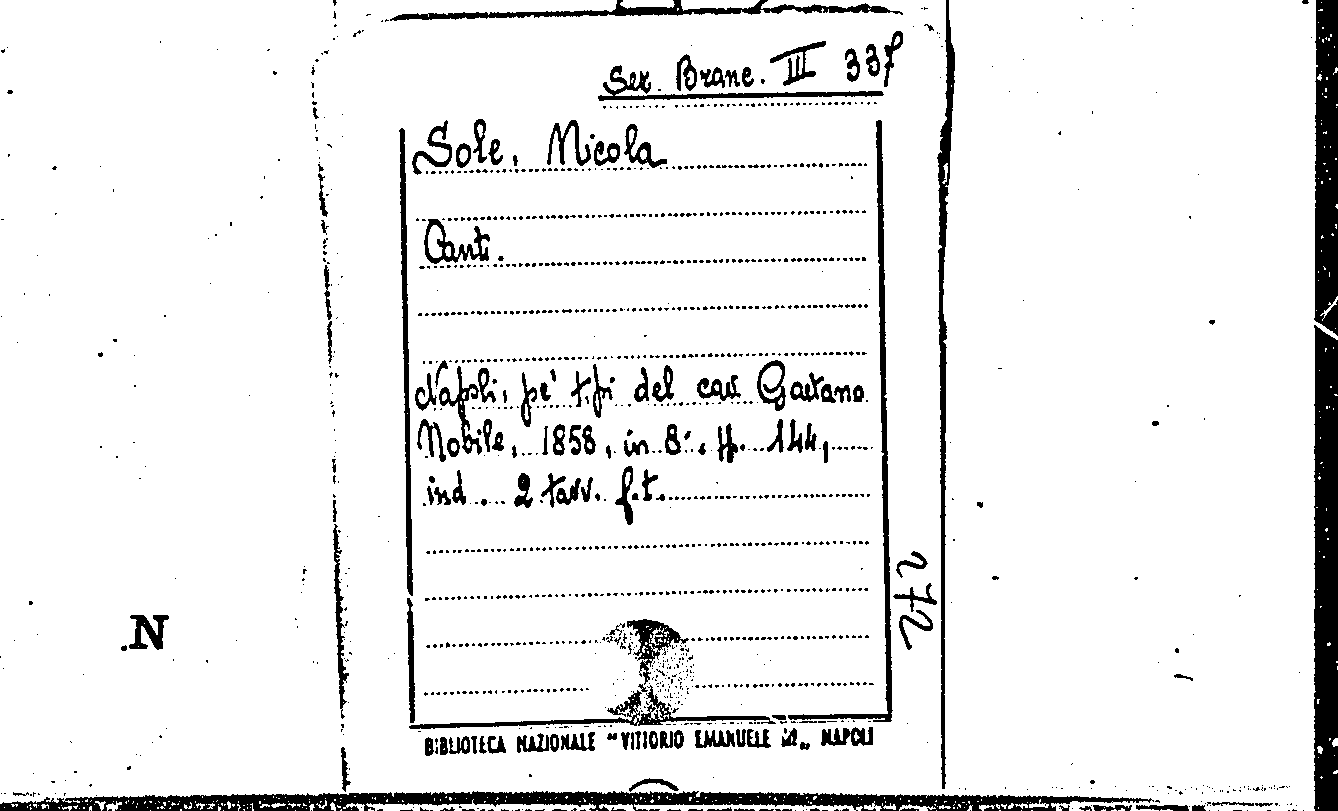 Ser. Branc. III 337
Sole, Nicola
Canti.
Napoli, pe' tipi del cav Gaetano
Nobile, 1858, in 8°. pp. 144,
ind. 2 tavv. f.t.
272
.N
BIBLIOTECA NAZIONALE "VITTORIO EMANUELE III„ NAPOLI